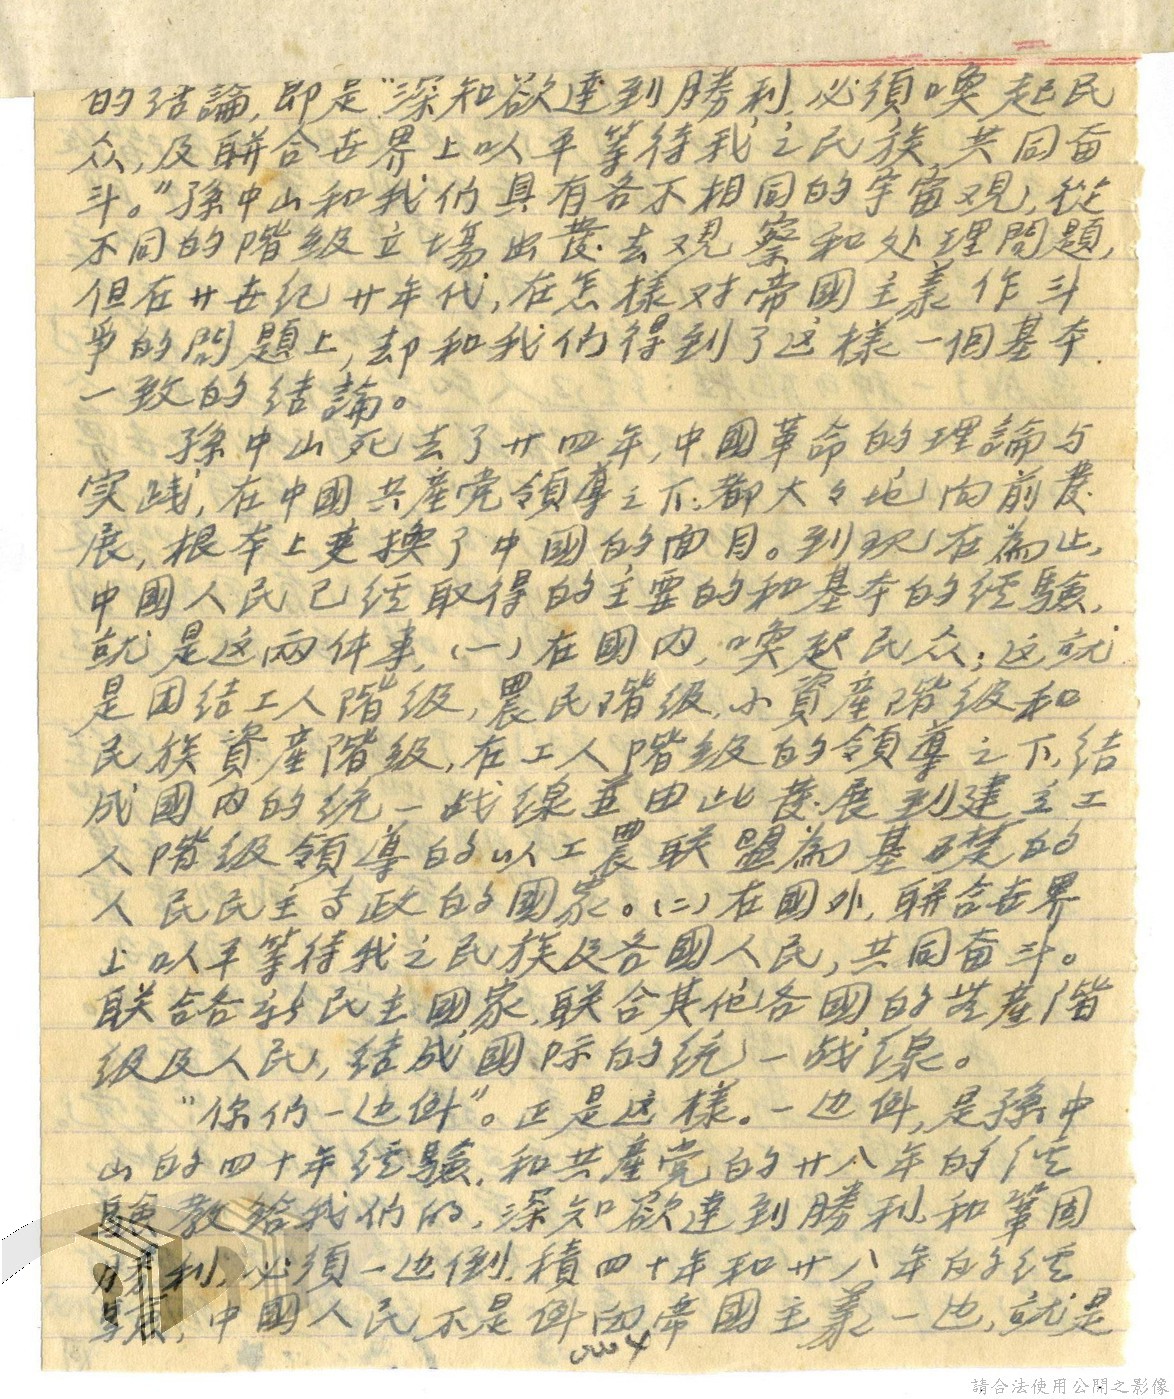 的结論，即是“深知欲達到勝利，必須喚起民
众，及聯合世界上以平等待我之民族，共同奋
斗。”孫中山和我們具有各不相同的宇宙观，從
不同的階級立場出發去观察和处理問題，
但在廿世纪廿年代，在怎樣对帝國主義作斗
爭的問題上，却和我們得到了这樣一個基本
一致的结論。
孫中山死去了廿四年，中國革命的理論与
实践，在中國共產党領導之下，都大々地向前發
展，根本上更換了中國的面目。到现在為止，
中國人民已经取得的主要的和基本的经驗，
就是这兩件事，（一）在國内，喚起民众；这就
是团结工人階級，農民階级，小資產階级和
民族資產階级，在工人階级的領導之下，结
成國内的统一战線並由此發展到建立工
人階级領導的以工農联盟為基礎的
人民民主专政的國家。（二）在國外，聯合世界
上以平等待我之民族及各國人民，共同奋斗。
联合各新民主國家，联合其他各國的无產階
级及人民，结成國际的统一战線。
“你們一边倒”。正是这樣。一边倒，是孫中
山的四十年经驗，和共產党的廿八年的经
驗教給我們的，深知欲達到勝利和鞏固
勝利，必須一边倒，積四十年和廿八年的经
驗，中國人民不是倒向帝國主義一边，就是
334
請合法使用公開之影像